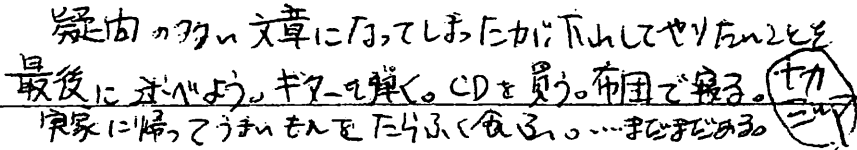 疑問の多い文章になってしまったが、下山してやりたいことを
最後に述べよう。ギターを弾く。CDを買う。布団で寝る。
実家に帰ってうまいもんをたらふく食う。…まだまだある。